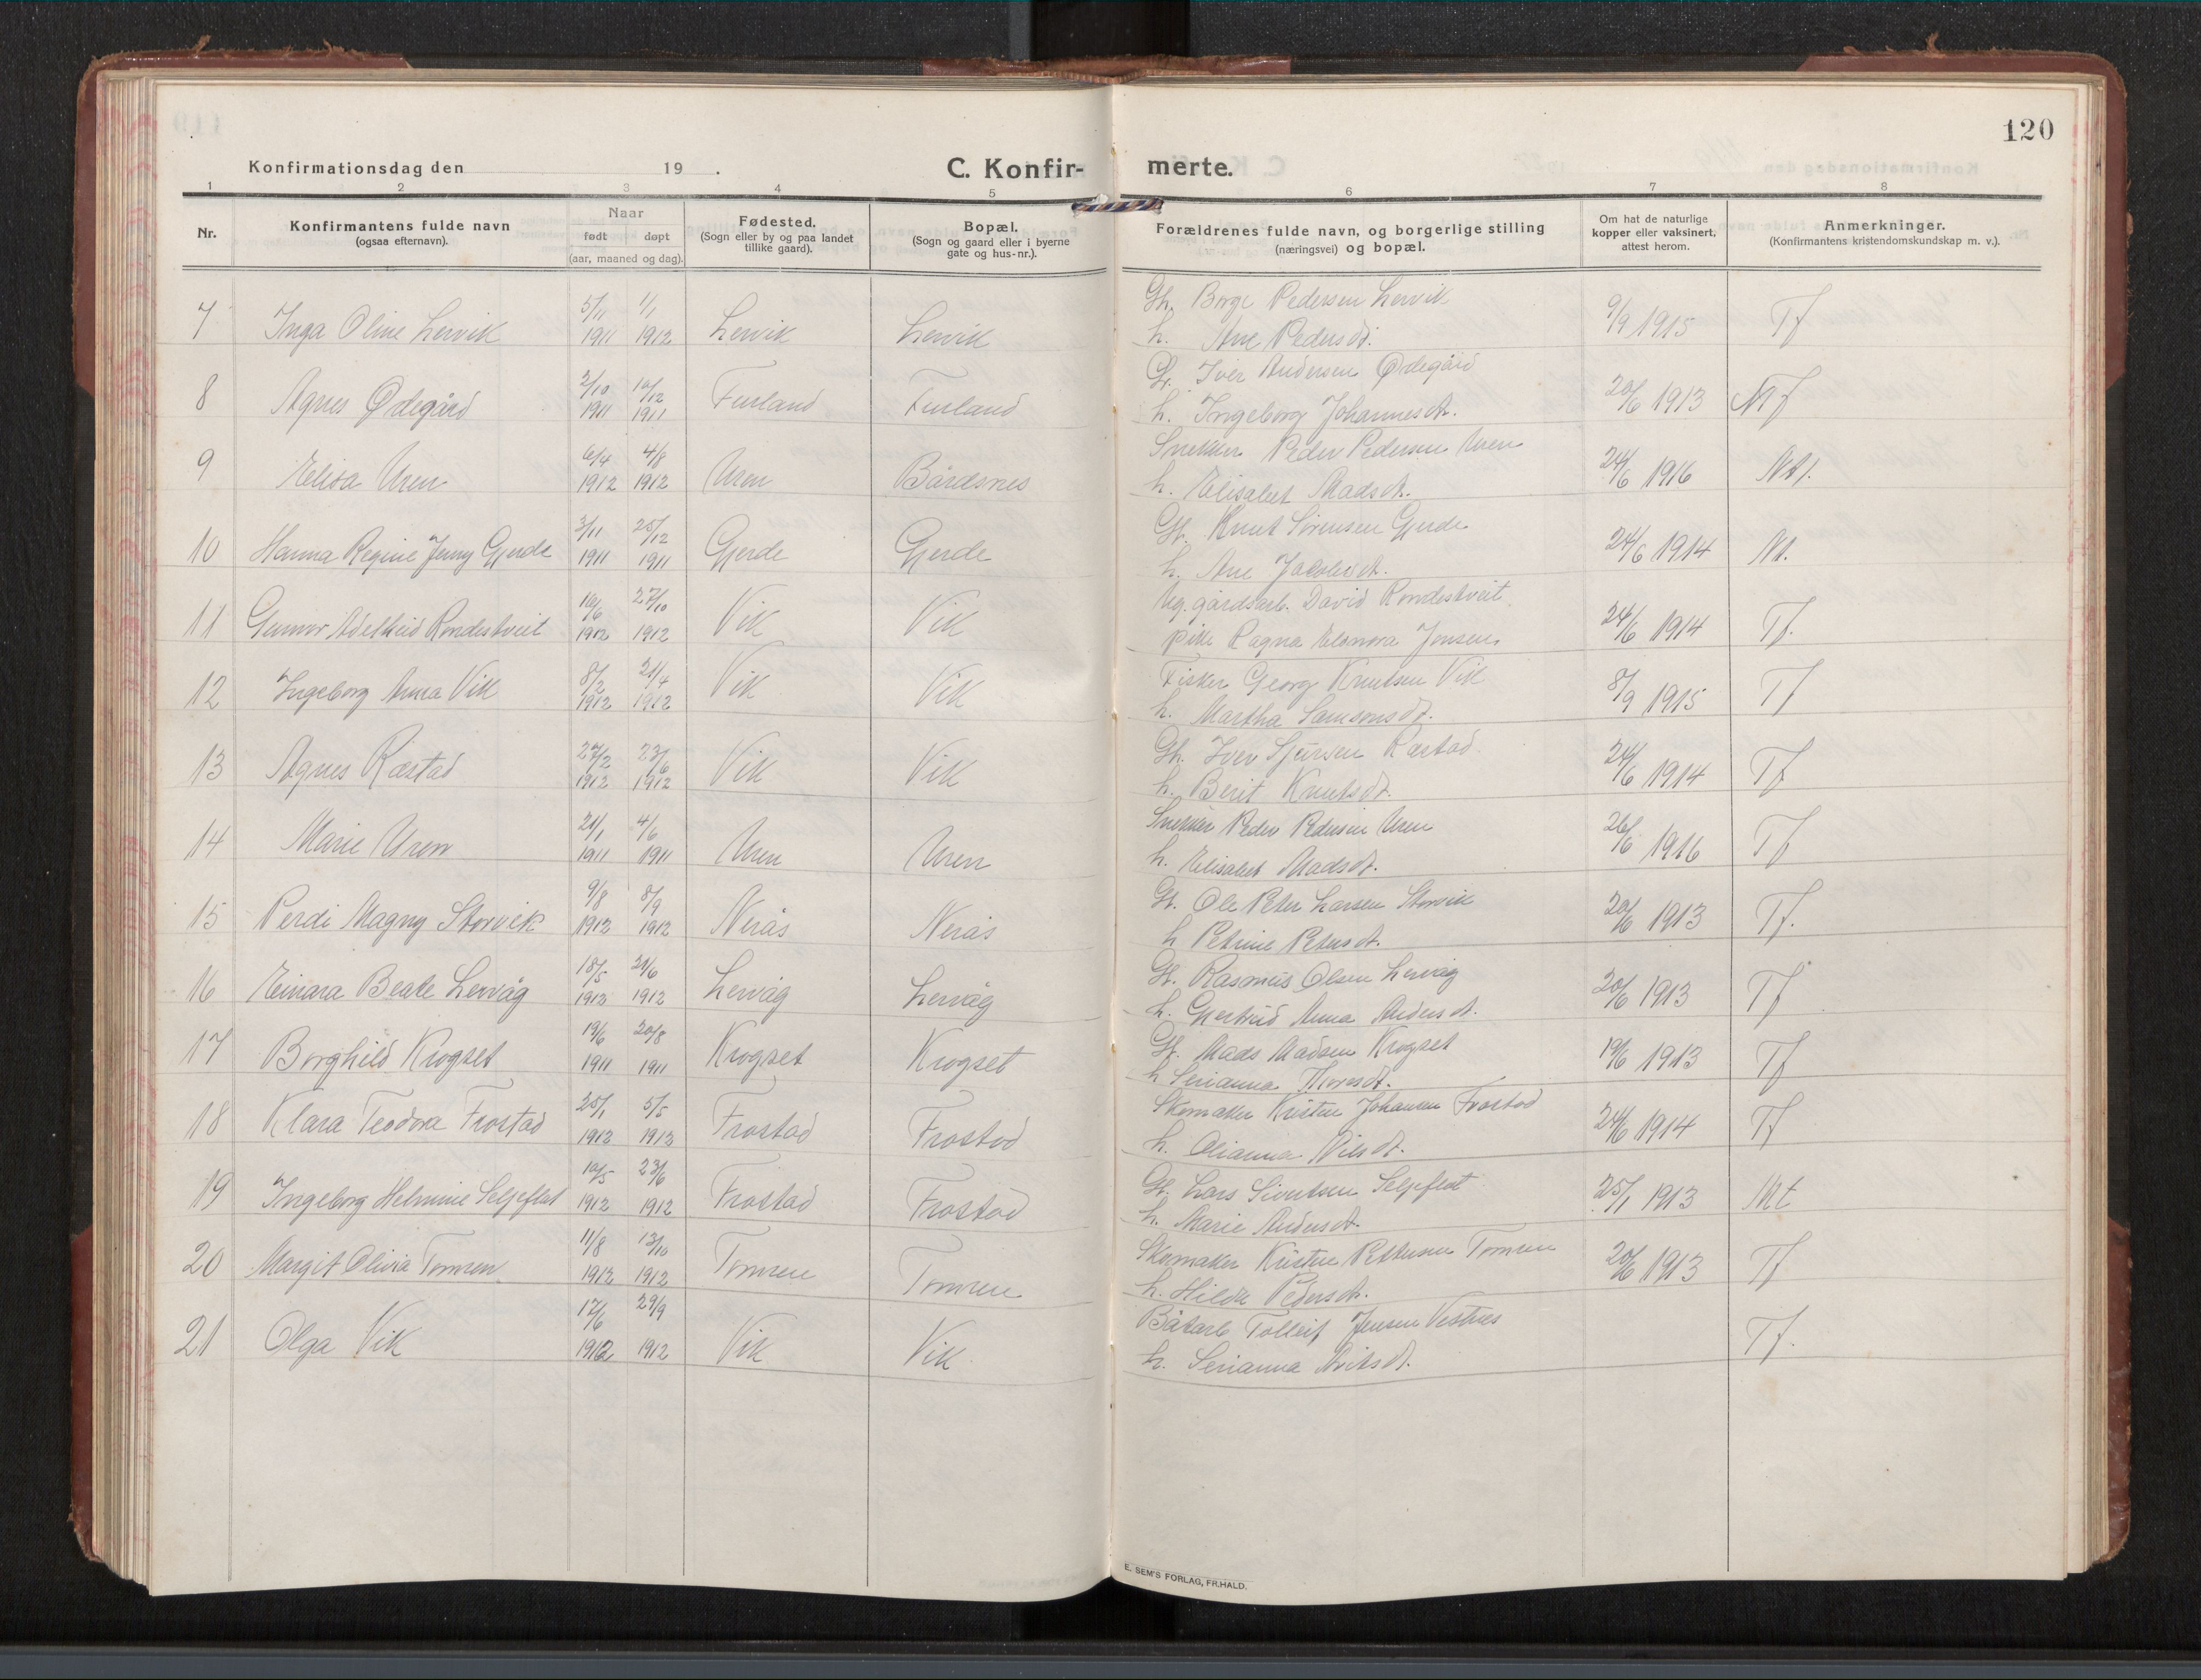 120
Konfirmationsdag den 19 .
C. Konfir- merte.
1 2 3 4 5 6 7 8
Nr.
Konfirmantens fulde navn
(ogsaa efternavn).
Naar
født døpt
(aar, maaned og dag).
Fødested.
(Sogn eller by og paa landet
tillike gaard).
Bopæl.
(Sogn og gaard eller i byerne
gate og hus-nr.).
Forældrenes fulde navn, og borgerlige stilling
(næringsvei) og bopæl.
Om hat de naturlige
kopper eller vaksinert,
attest herom.
Anmerkninger.
(Konfirmantens kristendomskundskap m. v.).
5/11 1/1 Gh. Børge Pedersen Lervik
7 Inga Oline Lervik 1911 1912 Lervik Lervik h. Ane Pedersdt. 9/9 1915 Tf
2/10 10/12 G. Iver Andersen Ødegård
8 Agnes Ødegård 1911 1911 Furland Furland h. Ingeborg Johannesdt. 20/6 1913 Mf
6/4 4/8 Snekker Peder Pedersen Uren
9 Elisa Uren 1912 1912 Uren Bårdsnes h. Elisabet Madsdt. 24/6 1916
3/11 25/12 G. Knut Sørensen Gjerde
10 Hanna Regine Jenny Gjerde 1911 1911 Gjerde Gjerde h. Ane Jacobsdt. 24/6 1914
10/6 27/10 Ug. gårdsarb. David Rondestveit
11 Gunvor Adelheid Rondestveit 1912 1912 Vik Vik pike Ragna Elonora Jensen 24/6 1914 Tf.
8/2 21/4 Fisker Georg Knutsen Vik
12 Ingeborg Anna Vik 1912 1912 Vik Vik h. Martha Samsonsdt. 8/9 1915 Tf
27/2 23/6 Gh. Iver Sjursen Ræstad
13 Agnes Ræstad 1912 1912 Vik Vik h. Berit Knutsdt. 24/6 1914 Tf
21/1 4/6 Snekker Peder Pedersen Uren
14 Marie Uren 1911 1911 Uren Uren h. Elisabet Madsdt. 26/6 1916 Tf
9/8 8/9 G. Ole Peter Larsen Storvik
15 Perdi Magny Storvik 1912 1912 Nerås Nerås h Petrine Petersdt. 20/6 1913 Tf.
18/5 21/6 G. Rasmus Olsen Lervåg
16 Einara Beate Lervåg 1912 1912 Lervåg Lervåg h. Gjertrud Anna Andersdt. 20/6 1913 Tf
19/6 20/8 G. Mads Madsen Krogset
17 Borghild Krogset 1911 1911 Krogset Krogset h Serianna Iversdt. 19/6 1913 Tf
25/1 5/5 Skomaker Kristen Johansen Frostad
18 Klara Teodora Frostad 1912 1912 Frostad Frostad h. Olianna Nilsdt. 24/6 1914 Tf
10/5 23/6 G. Lars Sivertsen Seljeflot
19 Ingeborg Helmine Seljeflot 1912 1912 Frostad Frostad h. Marie Andersdt. 25/1 1913 Mt
11/8 13/10 Skomaker Kristen Pettersen Tomren
20 Margit Olivia Tomren 1912 1912 Tomren Tomren h. Hilda Pedersdt. 20/6 1913 Tf
17/6 29/9 Båtarb Tolleif Jensen Vestnes
21 Olga Vik 1912 1912 Vik Vik h. Serianna Tf.
E. SEM'S FORLAG, FR.HALD.